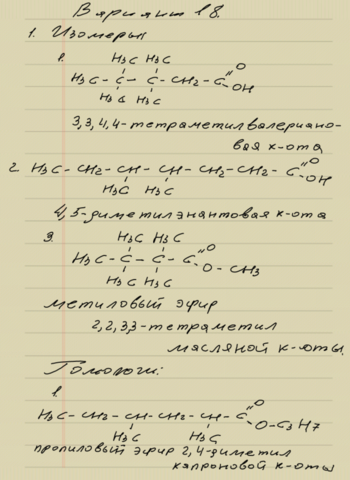 Вариант 18.
1. Изомеры
1.
H3C H3C
H3C - C - C - CH2 - C O
H3C H3C OH
3,3,4,4-тетраметилвалериано-
вая к-ота
2. H3C - CH2 - CH - CH - CH2 - CH2 - C O
H3C H3C OH
4,5-диметилэнантовая к-ота
3.
H3C H3C
H3C - C - C - C O
H3C H3C O - CH3
метиловый эфир
2,2,3,3-тетраметил
масляной к-оты.
Гомологи:
1.
H3C - CH2 - CH - CH2 - CH - C O
H3C H3C O - C3H7
пропиловый эфир 2,4-диметил
капроновой к-оты